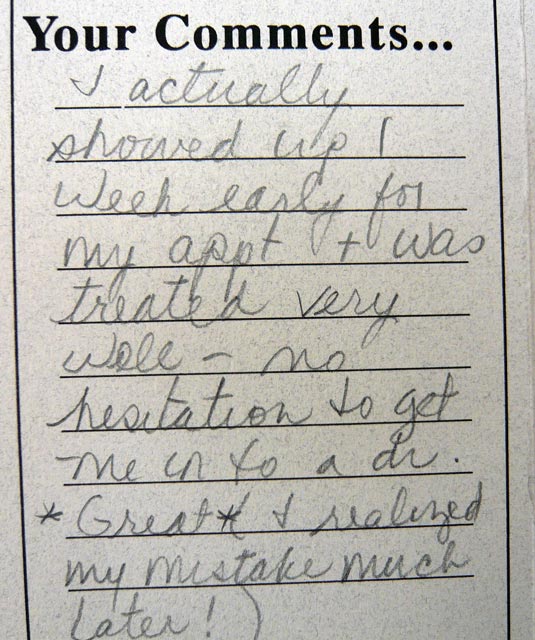 Your Comments...
I actually
showed up 1
week early for
my appt + was
treated very
well - no
hesitation to get
me in to a dr.
*Great* I realized
my mistake much
later! )